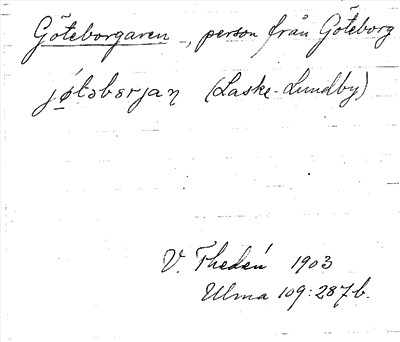 Göteborgaren -, person från Göteborg
jøtəbɛrjan (Laske-Lundby)
V. Thedéń 1903
Ulma 109:287b.